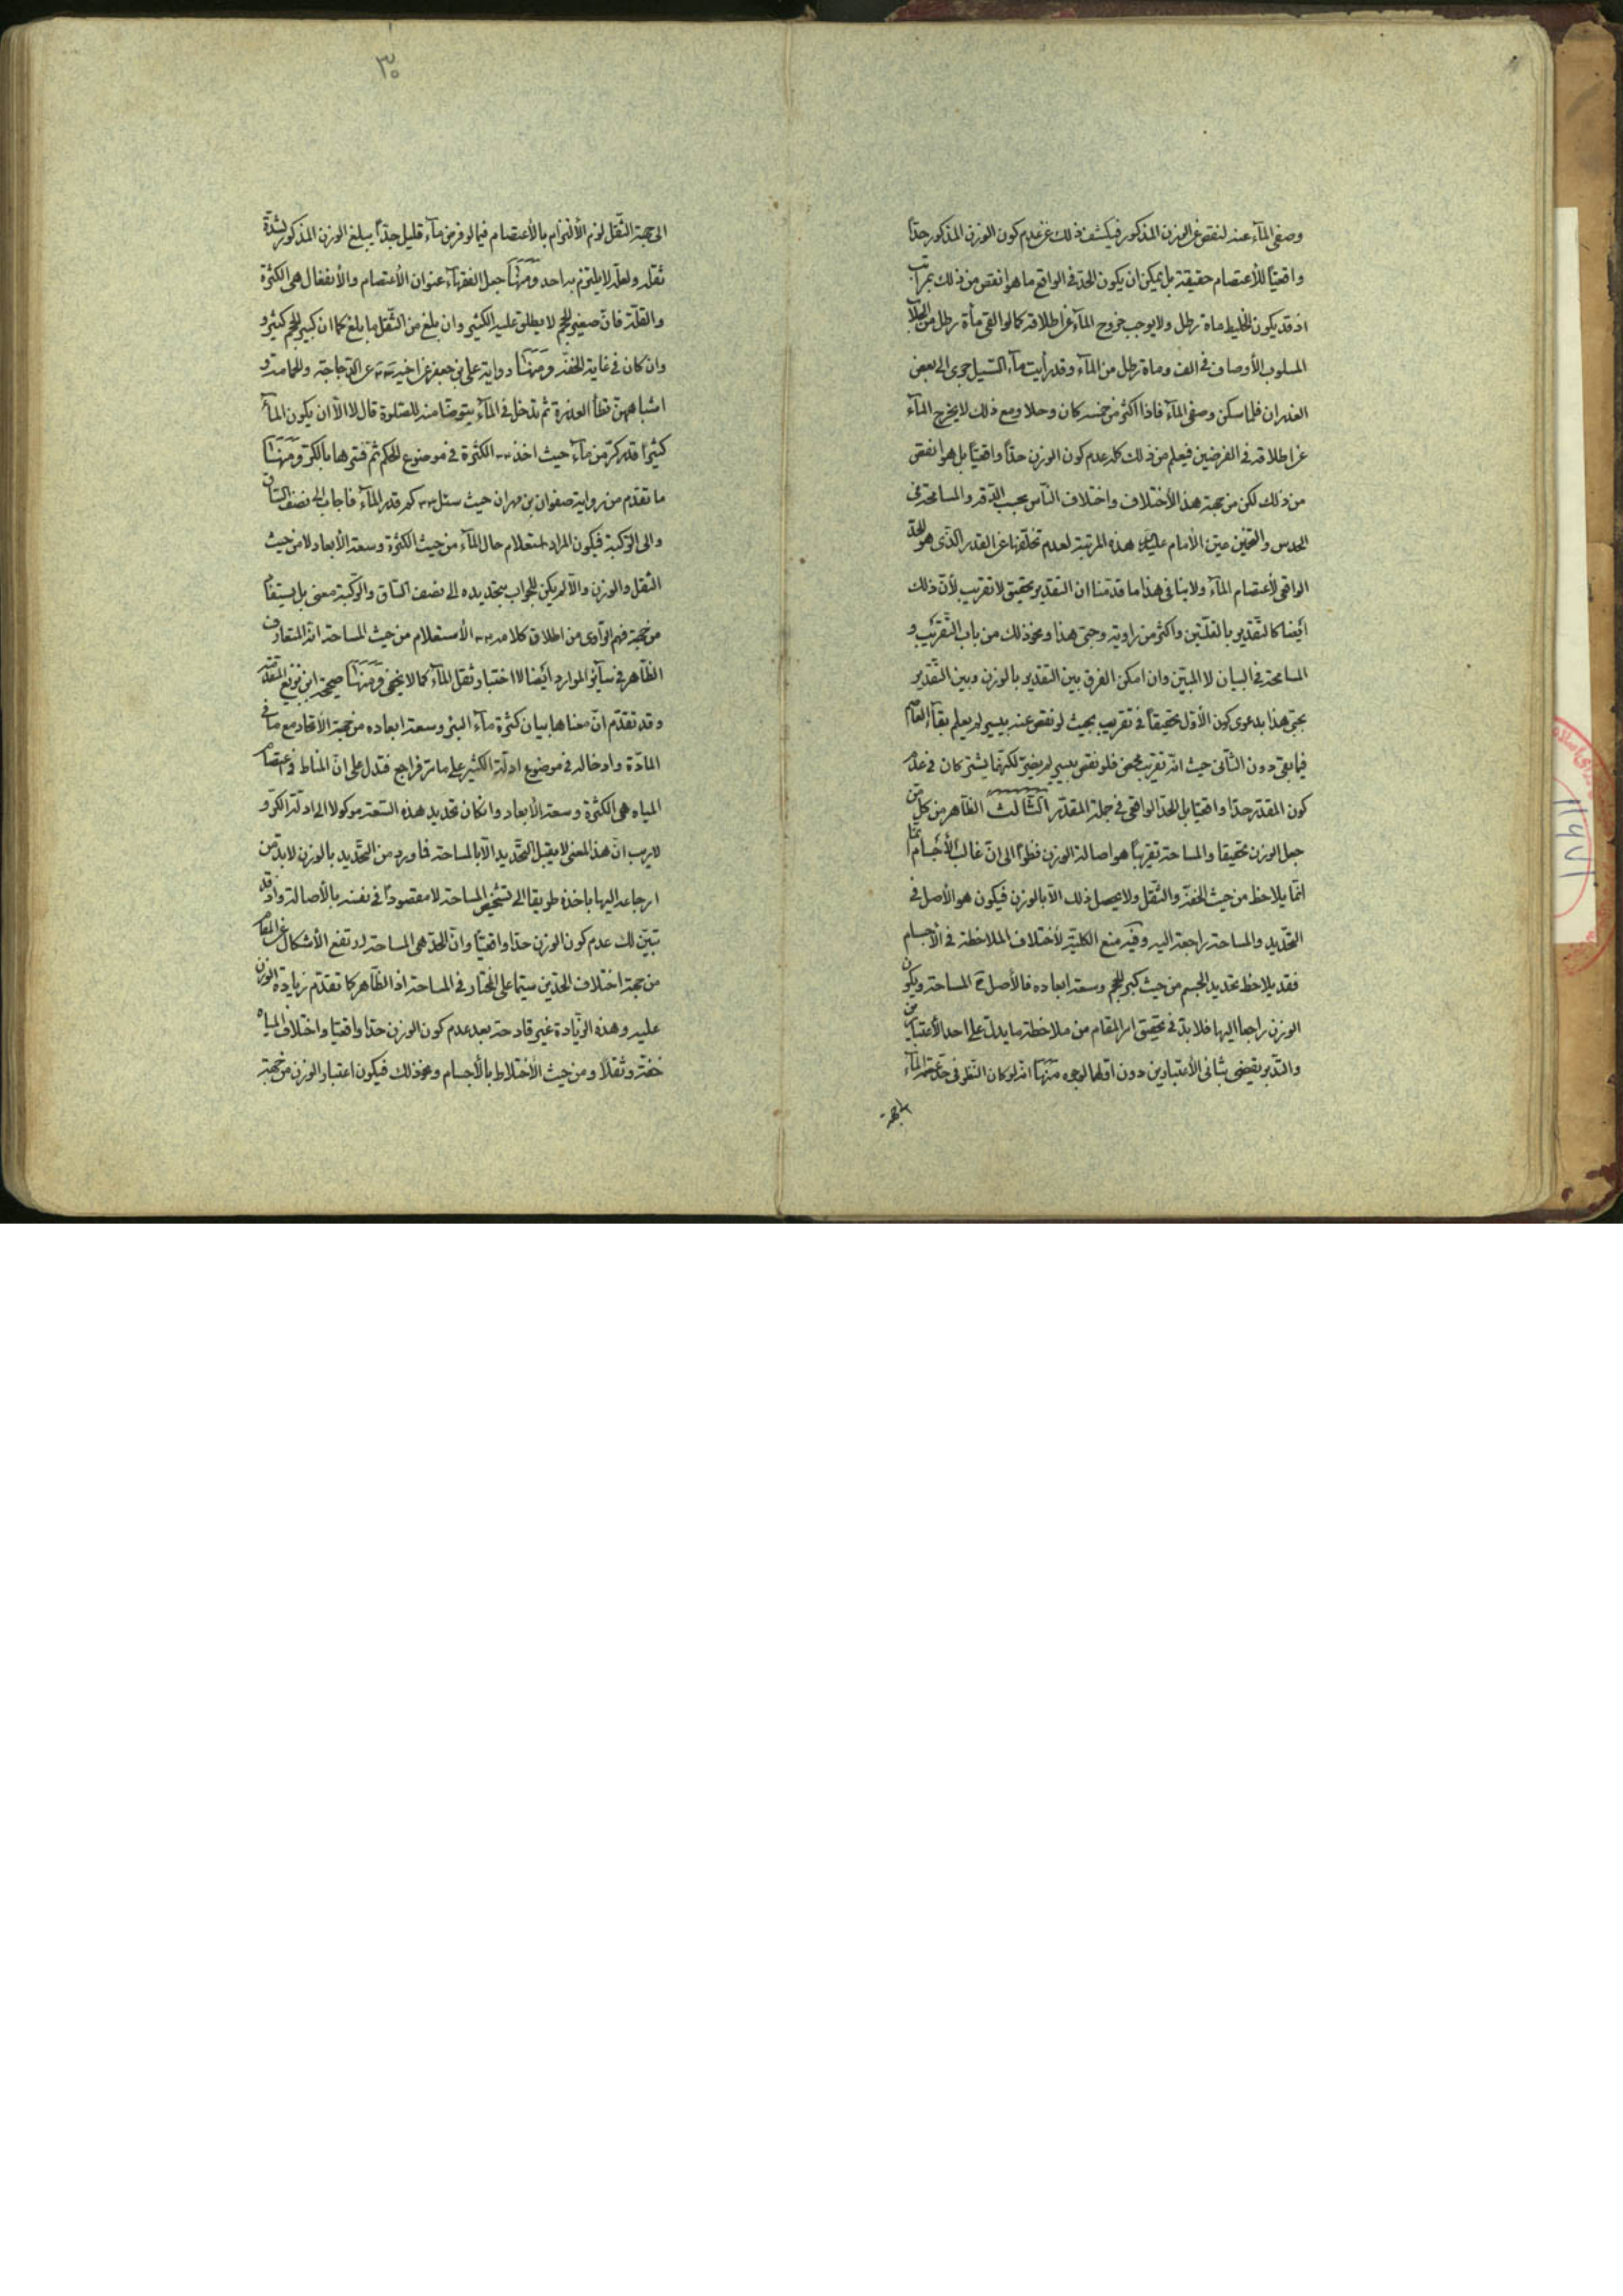 وصفى المآء عنه لنقص عن الوزن المذكور فيكشف ذلك عن عدم كون الوزن المذكور حدّاً
واقعيّاً للأعتصام حقيقة بل يمكن ان يكون الحدّ فى الواقع ما هو انقص من ذلك بمراتب
اذ قد يكون الخليط ماة رطل ولا يوجب خروج المآء عن اطلاقه كما لو القى مأة رطل من
المسلوب الأوصاف فى الف وماة رطل من المآء وقد رأيت مآء السّيل جرى الى بعض
الغدران فلما سكن وصفى المآء فاذا اكثر من خمسه كان وحلا ومع ذلك لا يخرج المآء
عن اطلاقه فى الفرضين فيعلم من ذلك كله عدم كون الوزن حدّاً واقعيّاً بل هو انقص
من ذلك لكن من جهة هذا الأختلاف واختلاف النّاس بحسب الدّقه والمسامحة فى
الحدس والتخمين عيّن الأمام عليه هذه المرتبة لعدم تخلّفها عن القدر الّذى هو الحدّ
الواقعى لأعتصام المآء ولا ينافى هذا ما قدّمنا ان التقدير تحقيق لا تقريب لأنّ ذلك
ايضا كالتّقدير بالقلّتين واكثر من راوية وحبّى هذا ونحو ذلك من باب التّقريب و
المسامحة فى البيان لا المبيّن وان امكن الفرق بين التقدير بالوزن وبين التّقدير
بحبّى هذا بدعوى كون الأوّل تحقيقاً فى تقريب بحيث لو نقص عنه بيسير لم يعلم بقآء
فيما بقى دون الثّانى حيث انّه تقريب محض فلو نقص بيسير لم يضرّ لكنهما يشتركان فى عدم
كون المقدّر حدّا واقعيّا بل الحدّ الواقعى فى جملة المقدّر الثّالث الظّاهر من كلّ من
جعل الوزن تحقيقا والمساحة تقريباً هو اصالة الوزن نظراً الى انّ غالب الأجسام
انّما يلاحظ من حيث الخفّة والثّقل ولا يحصل ذلك الّا بالوزن فيكون هو الأصل فى
التّحديد والمساحة راجعة اليه وفيه منع الكليّة لأختلاف الملاحظة فى الأجسام
فقد يلاحظ تحديد الجسم من حيث كبر الحجم وسعة ابعاده فالأصل ح المساحة ويكون
الوزن راجعا اليها فلا بدّ فى تحقيق امر المقام من ملاحظة ما يدلّ على احد الأعتبارين
والتّدبر يقضى بثانى الأعتبارين دون اوّلهما لوجوه منها انه لو كان النّظر فى
الى جهة
٣٠
الى جهة الثّقل لزم الألتزام بالأعتصام فيما لو فرض مآء قليل جدّاً يبلغ الوزن المذكور لشدّة
ثقله ولعلّه لا يلتزم به احد ومنها جعل الفقهآء عنوان الأعتصام والأنفعال هى الكثرة
والقلّة فانّ صغير الحجم لا يطلق عليه الكثير وان بلغ من الثّقل ما بلغ كما ان كبير الحجم كثير و
وان كان فى غاية الخفّة ومنها رواية على بن جعفر عن اخيه عن الدّجاجة والحمامة و
اشباههنّ تطأ العذرة ثم تدخل فى المآء يتوضّا منه للصّلوة قال لا الّا ان يكون المآء
كثيراً قدر كرّ من مآء حيث اخذ الكثرة فى موضوع الحكم ثمّ فسّرها بالكرّ ومنها
ما تقدّم من رواية صفوان بن مهران حيث سئل كم قدر المآء فاجاب الى نصف السّاق
والى الرّكبة فيكون المراد استعلام حال المآء من حيث الكثرة وسعة الأبعاد لا من حيث
الثّقل والوزن والّا لم يكن للجواب بتحديده الى نصف السّاق والرّكبة معنى بل يستفاد
من جهة فهم الرّاوى من اطلاق كلامه الأستعلام من حيث المساحة انّه المتعارف
الظّاهر فى سآئر الموارد ايضا لا اختبار ثقل المآء كما لا يخفى ومنها صحيحة ابن بزيع المتقدّمة
وقد تقدّم انّ معناها بيان كثرة مآء البئر وسعة ابعاده من جهة الأتحاد مع ما فى
المادّة وادخاله فى موضوع ادلّة الكثير على ما مرّ فراجع فتدل على انّ المناط فى اعتصام
المياه هى الكثرة وسعة الأبعاد وانكان تحديد هذه السّعة موكولا الى ادلّة الكرّ و
لا ريب انّ هذا المعنى لا يقبل التّحديد الّا بالمساحة فما ورد من التّحديد بالوزن لا بدّ من
ارجاعه اليها باخذه طريقا الى تشخيص المساحة لا مقصوداً فى نفسه بالأصالة واذ قد
تبيّن لك عدم كون الوزن حدّا واقعيّاً وانّ الحدّ هى المساحة ارتفع الأشكال عن المقام
من جهة اختلاف الحدّين سيّما على المختار فى المساحة اذ الظّاهر كما تقدّم زيادة الوزن
عليه وهذه الزّيادة غير قادحة بعد عدم كون الوزن حدّا واقعيّا واختلاف المياه
خفّة وثقلاً ومن حيث الأختلاط بالأجسام ونحو ذلك فيكون اعتبار الوزن من جهة